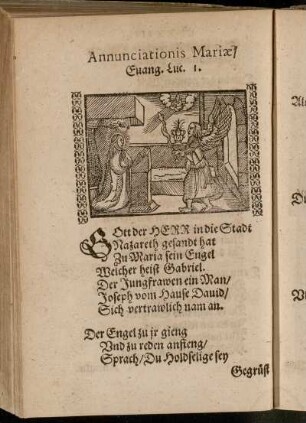 Annunciationis Mariæ/
Euang. Luc. 1.
GOtt der HERR in die Stadt
Nazareth gesandt hat
Zu Maria sein Engel
Welcher heist Gabriel.
Der Jungfrawen ein Man/
Joseph vom Hause Dauid/
Sich vertrawlich nam an.
Der Engel zu jr gieng
Vnd zu reden anfieng/
Sprach/Du Holdselige sey
Gegrüst